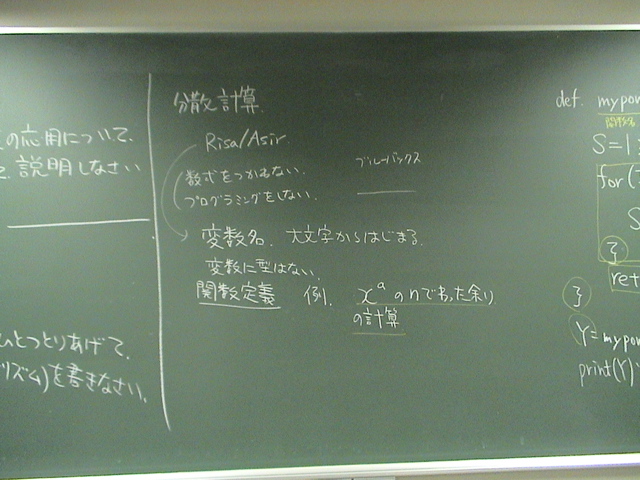 の応用について、
説明しなさい
ひとつとりあげて、
リズム)を書きなさい。
分散計算.
Risa/Asir.
数式をつかわない.
プログラミングをしない.
ブルーバックス
変数名. 大文字からはじまる.
変数に型はない.
関数定義 例. x^a のnでわった余り
の計算
def. mypow
関数名
S=1;
for(
S
}
ret
}
Y=mypow
print(Y)